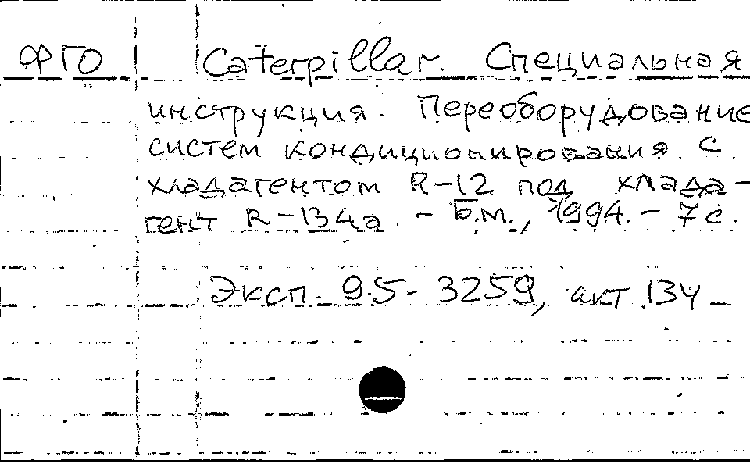 ФГО Caterpillar. Специальная
инструкция. Переоборудование
систем кондиционирования с
хладагентом R-12 под хлада-
гент R-134a. - Б.м., 1994. - 7 с.
Эксп 95-3259, акт 134